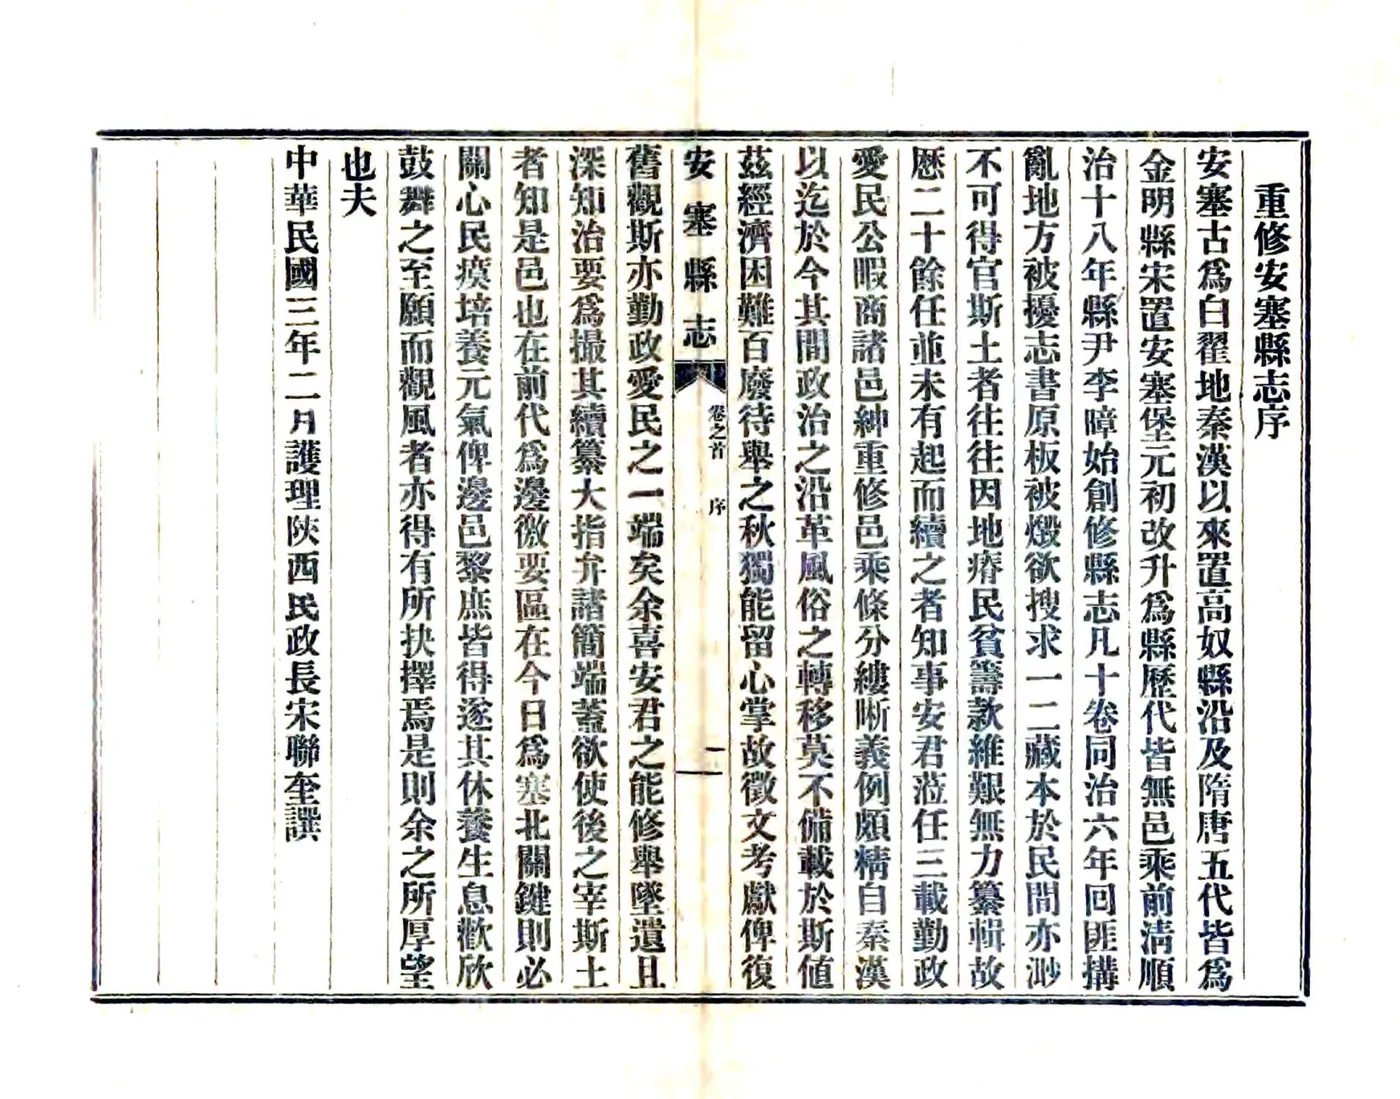 重修安塞縣志序
安塞古爲白翟地秦漢以來置高奴縣沿及隋唐五代皆爲
金明縣宋置安塞堡元初改升爲縣歷代皆無邑乘前淸順
治十八年縣尹李暐始創修縣志凡十卷同治六年回匪搆
亂地方被擾志書原板被燬欲搜求一二藏本於民間亦渺
不可得官斯土者往往因地瘠民貧籌款維艱無力纂輯故
歷二十餘任並未有起而續之者知事安君蒞任三載勤政
愛民公暇商諸邑紳重修邑乘條分縷晰義例頗精自秦漢
以迄於今其間政治之沿革風俗之轉移莫不備載於斯値
茲經濟困難百廢待舉之秋獨能留心掌故徵文考獻俾復
安塞縣志 卷之首 序 一
舊觀斯亦勤政愛民之一端矣余喜安君之能修舉墜遺且
深知治要爲撮其續纂大指弁諸簡端蓋欲使後之宰斯土
者知是邑也在前代爲邊徼要區在今日爲塞北關鍵則必
關心民瘼培養元氣俾邊邑黎庶皆得遂其休養生息歡欣
鼓舞之至願而觀風者亦得有所抉擇焉是則余之所厚望
也夫
中華民國三年二月護理陝西民政長宋聯奎譔